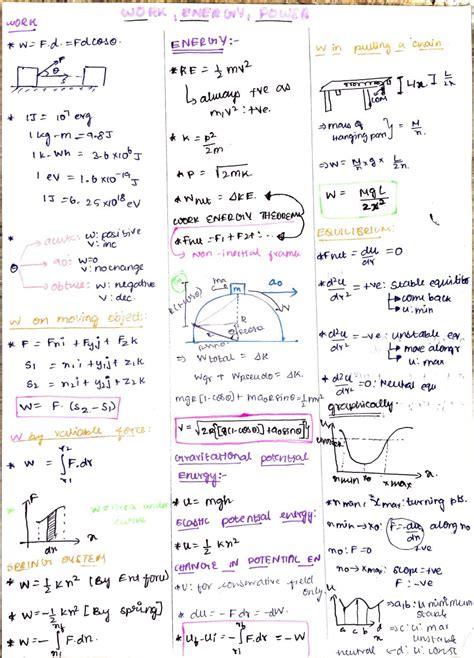 WORK, ENERGY, POWER
WORK
* W = F.d. = Fdcosθ.
F
θ
S
* 1J = 10⁷ erg
1 kg-m = 9.8J
1 k-wh = 3.6x10⁶ J
1 eV = 1.6x10⁻¹⁹ J
1J = 6.25x10¹⁸ eV
* θ
acute: W: positive
v: inc
90: W=0
v: no change
obtuse: W: negative
v: dec.
W on moving object:
* F = Fxi + Fyj + Fzk
S₁ = x₁i + y₁j + z₁k
S₂ = x₂i + y₂j + z₂k
W = F.(S₂-S₁)
W by variable force:
* W = ∫F.dx
F
dx
x
W = Area under curve
SPRING SYSTEM
* W = ½ kx² [By Ext force]
* W = -½ kx² [By spring]
* W = -∫F.dx.
ENERGY:-
* KE = ½ mv²
always +ve as
m, v²: +ve.
* K = p²/2m
* P = √2mK
* Wnet = ΔKE.
WORK ENERGY THEOREM
* Fnet = F₁ + F₂ + ...
non-inertial frame
m
a₀
R
θ
⇒ Wtotal = ΔK
Wgr + Wpseudo = ΔK.
mgR[1-cosθ] + ma₀R sinθ = ½ mv²
V = √2R[g(1-cosθ)+a₀sinθ]
Gravitational potential
Energy:-
* U = mgh
Elastic potential energy:
* U = ½ Kx²
CHANGE IN POTENTIAL EN
* U: for conservative field
only
* dU = -F.dx = -dW.
* Uf-Ui = -∫F.dx = -W
W in pulling a chain
L/n
⇒ mass of
Hanging part } = M/n.
⇒ W = M/n x g x L/2n.
W = MgL/2x²
EQUILIBRIUM:
* Fnet = du/dx = 0
* d²u/dx² = +ve: Stable equilib
come back
u: min
* d²u/dx² = -ve: unstable eq
move along r
u: max
* d²u/dx² = 0: Neutral equ
graphically
U
xmin x₀ xmax
x.
* xmin, xmax: turning pts.
xmin → x₀: F = -du along
x₀: F=0
x₀ → xmax: slope=+ve
F: -ve
U
a b c d
x
→ a, b: U minimum
stable
→ c: U: max
unstable
neutral ← d: U: const